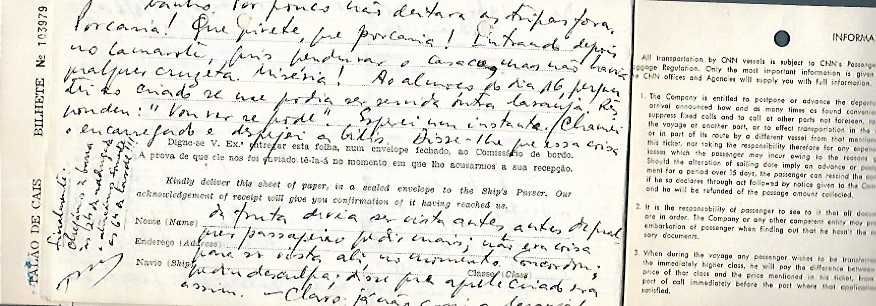 TALÃO DE CAIS BILHETE № 103979
banho. Por pouco não deitara as tripas fora.
Porcaria! Que pivete, que porcaria! Entrando depois
no camarote, quis pendurar o casaco, mas não havia
qualquer cruzeta. Miséria! Ao almoço do dia 16,
criado se me podia ser servida outra laranja.
"Vou ver se pode". Esperei um instante. Chamei
o encarregado e despejei a bílis. Disse-lhe que essa coisa
Digne-se V. Ex.ª entregar esta folha, num envelope fechado, ao Comissário de bordo.
A prova de que ele nos foi enviado tê-la-á no momento em que lhe acusarmos a sua recepção.
Kindly deliver this sheet of paper, in a sealed envelope to the Ship's Purser. Our
acknowledgement of receipt will give you confirmation of having reached us.
da fruta devia ser vista antes, antes de qual-
Nome (Name)
quer passageiro pedir mais; não era coisa
Endereço (Address)
para ser vista ali no momento. Concordou,
Navio (Ship) Classe (Class)
pediu desculpa; disse que aquele criado era
assim. — Claro, já não
INFORMA
All transportation by CNN vessels is subject to CNN's Passenge
ggage Regulation. Only the most important information is given
CNN offices and Agencies will supply you with full information.
1. The Company is entitled to postpone or advance the depart
arrival announced how and as many times as found convenien
suppress fixed calls and to call at other ports not foreseen, to
the voyage at another port, or to effect transportation in the
or in part of its route by a different vessel from that mention
this ticket, nor taking the responsibility therefore for any expen
losses which the passenger may incur owing to the reasons
Should the alteration of sailing date imply an advance or post
ment for a period over 15 days, the passenger can rescind the con
if he so declares through act followed by notice given to the Com
and he will be refunded of the passage amount collected.
2. It is the responsability of passenger to see it that all docum
are in order. The Company or any other competent entity may pre
embarkation of passenger when finding out that he hasn't the
sory documents.
3. When during the voyage any passenger wishes to be transferred
the immediately higher class, he will pay the difference between
price of that class and the price mentioned in his ticket, from
port of call immediately before the port where that application
satisfied.